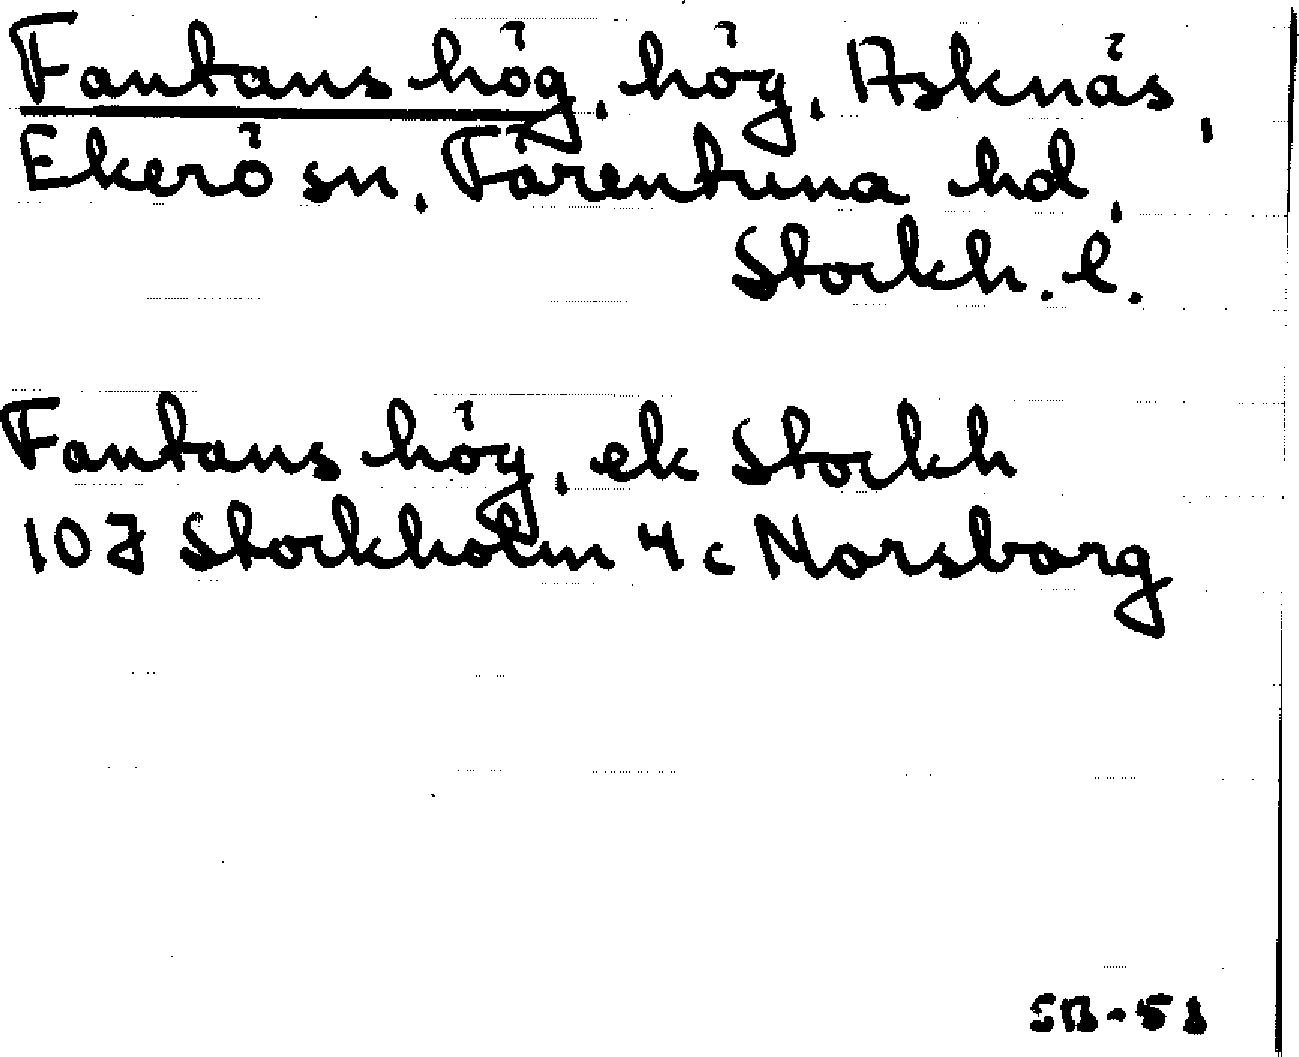 Fantans hög, hög, Asknäs,
Ekerö sn, Färentuna hd,
Stockh. l.
Fantans hög, ek Stockh
10J Stockholm 4c Norsborg